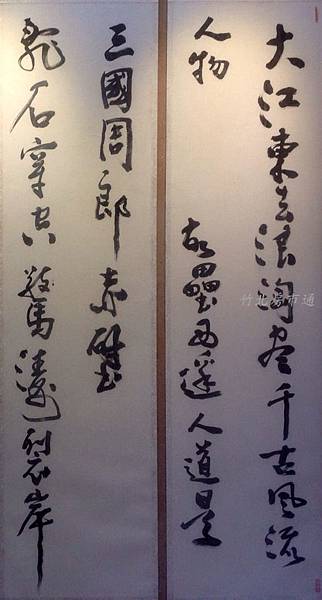 大江東去浪淘盡千古風流
人物
故壘西邊人道是
三國周郎赤壁
亂石穿空
驚濤裂岸
竹北房市通